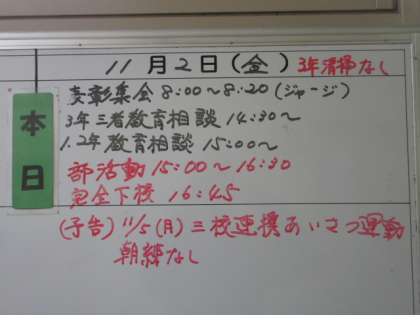 11月2日(金) 3年清掃なし
本日
表彰集会 8:00〜8:20(ジャージ)
3年三者教育相談 14:30〜
1.2年教育相談 15:00〜
部活動 15:00〜16:30
完全下校 16:45
(予告) 11/5(月) 三校連携あいさつ運動
朝練なし